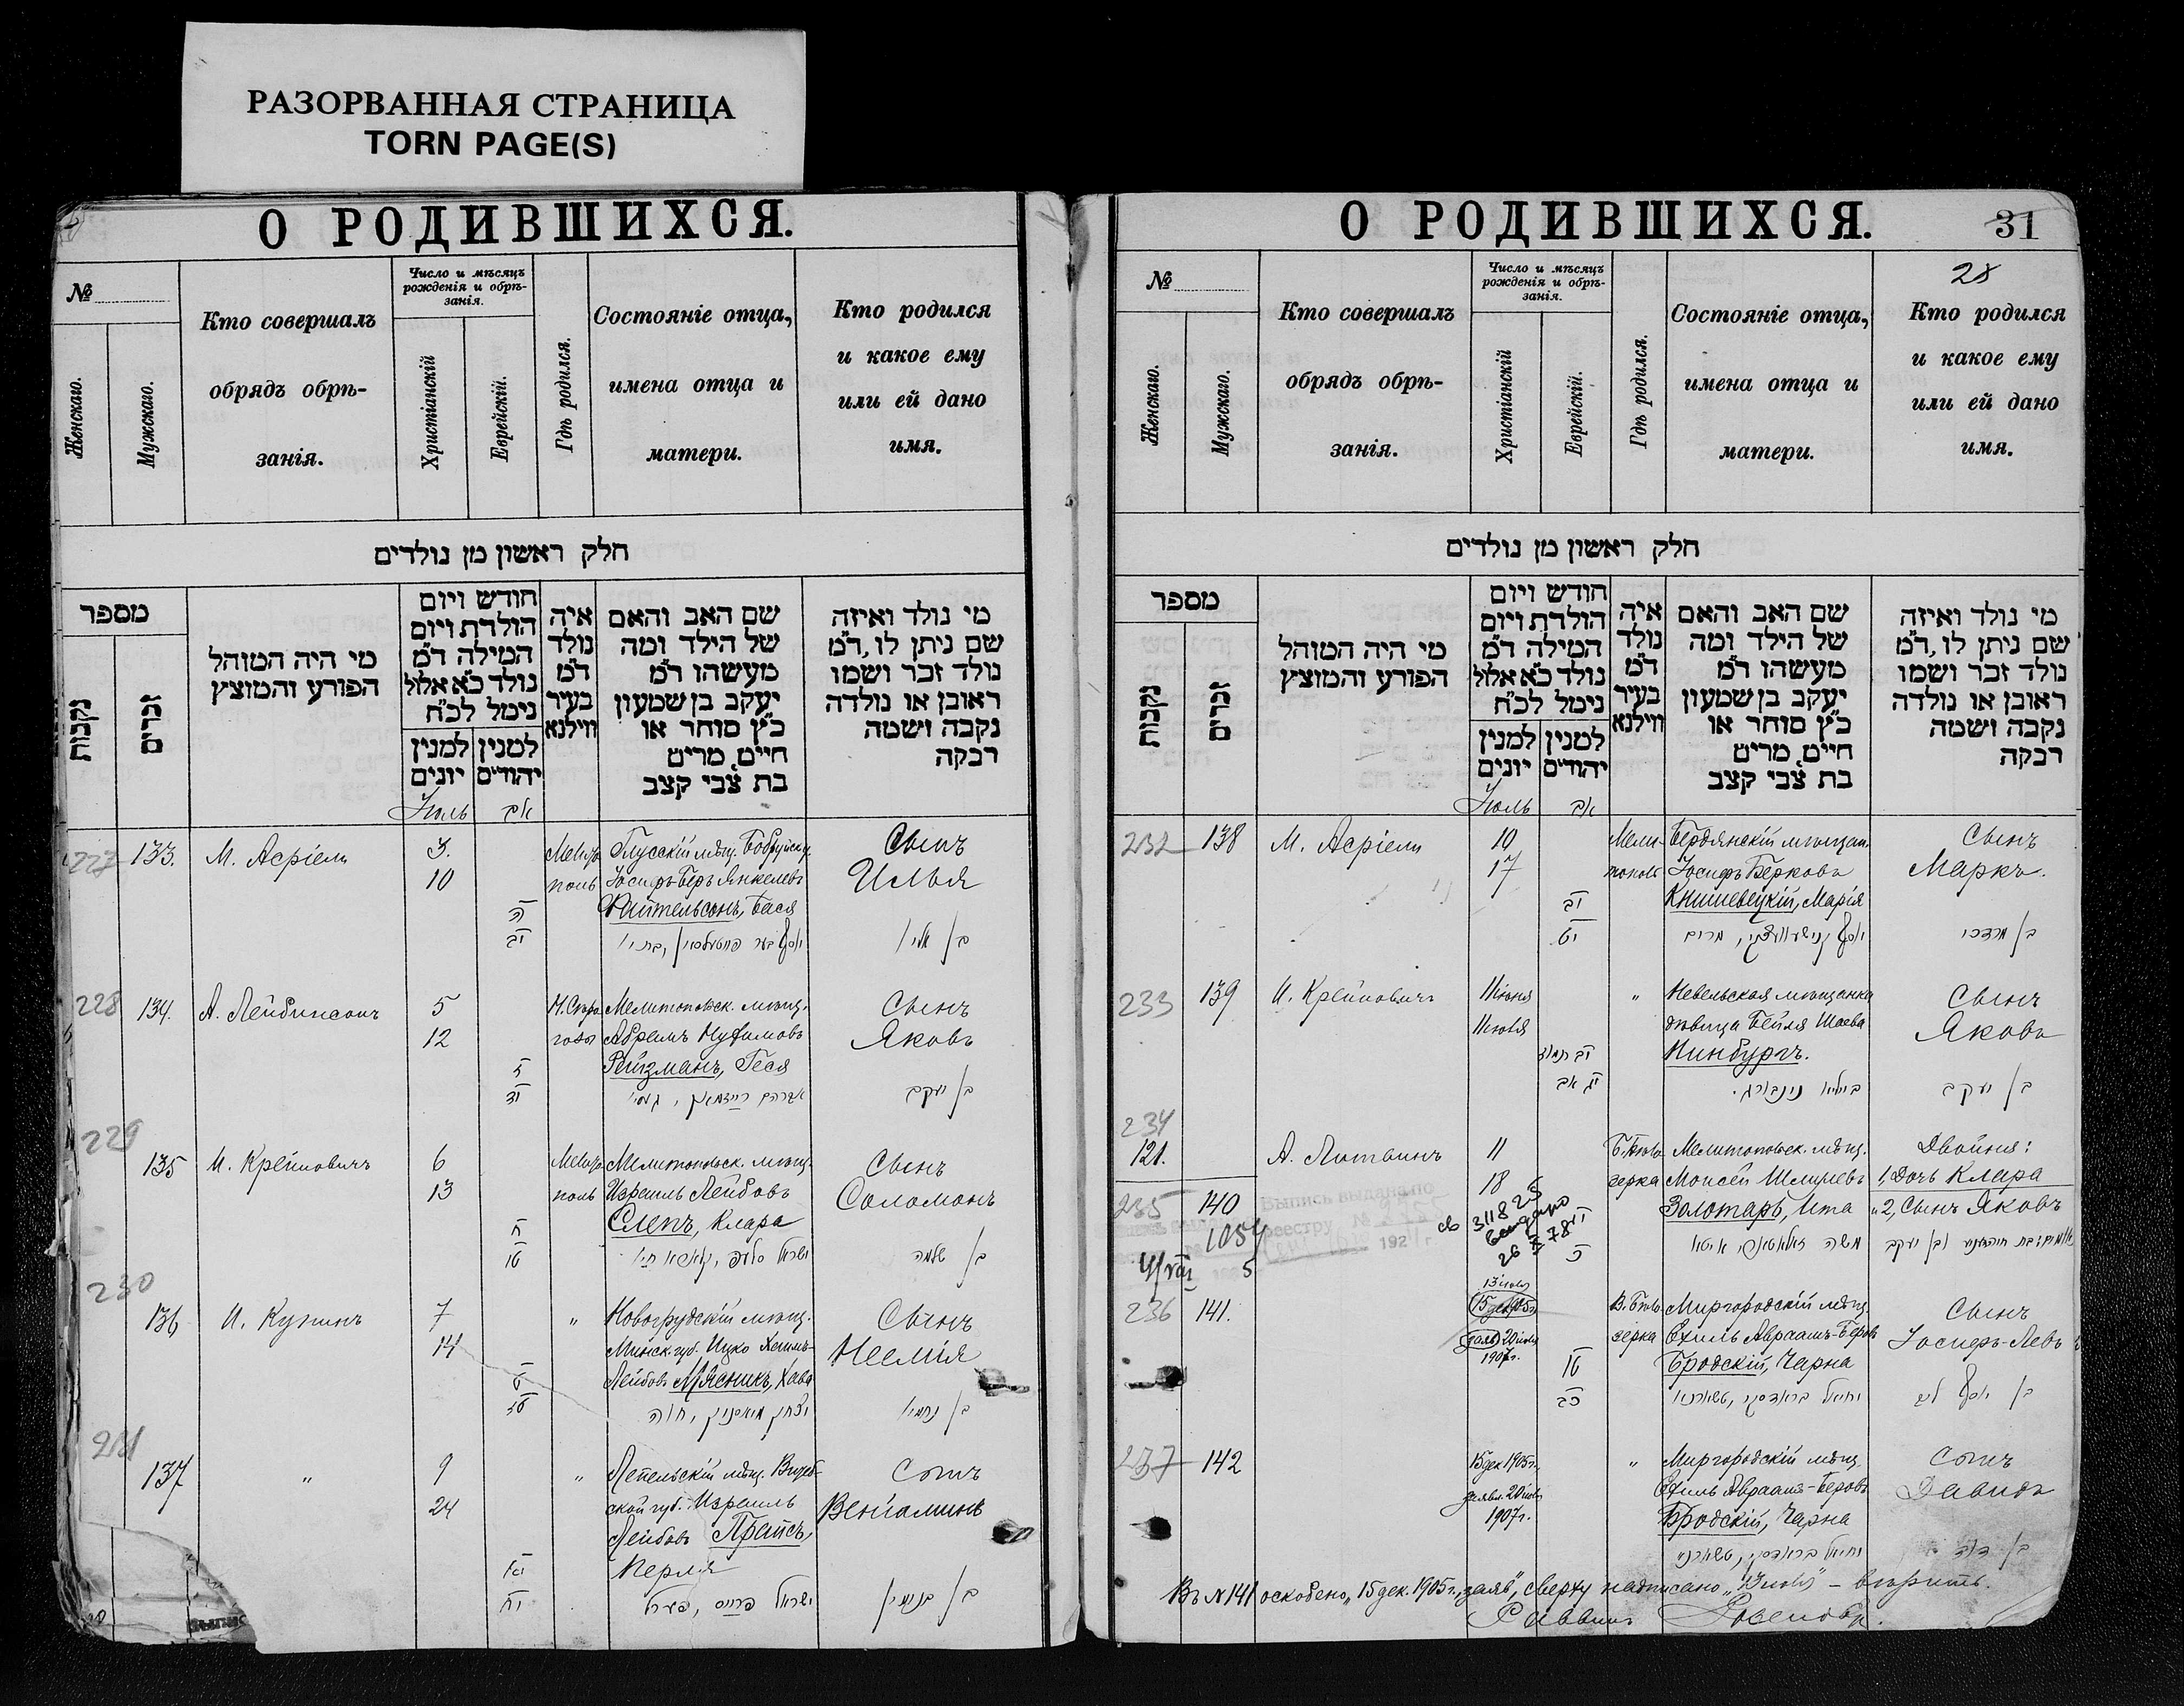 РАЗОРВАННАЯ СТРАНИЦА
TORN PAGE(S)
О РОДИВШИХСЯ.
№
Женскаго.
Мужскаго.
Кто совершалъ
обрядъ обрѣ-
занія.
Число и мѣсяцъ
рожденія и обрѣ-
занія.
Христіанскій
Еврейскій.
Гдѣ родился.
Состояніе отца,
имена отца и
матери.
Кто родился
и какое ему
или ей дано
имя.
חלק ראשון מן נולדים
מספר
נקבות
זכרים
מי היה המוהל
הפורע והמוצץ
חודש ויום
הולדת ויום
המילה ד״מ
נולד כ״א אלול
נימל לכ״ח
למנין
יונים
למנין
יהודים
איה
נולד
ד״מ
בעיר
ווילנא
שם האב והאם
של הילד ומה
מעשהו ד״מ
יעקב בן שמעון
כ״ץ סוחר או
חיים, מרים
בת צבי קצב
מי נולד ואיזה
שם ניתן לו, ד״מ
נולד זכר ושמו
ראובן או נולדה
נקבה ושמה
רבקה
Іюль
אב
227
133.
М. Асріели
3.
10
ה
יב
Мелито
поль
Глусскій мѣщ. Бобруйск. у.
Іосифъ-Беръ Янкелевъ
Файтельсонъ, Бася
Сынъ
Илья
228
134.
А. Лейбинсонъ
5
12
ז
יד
Мелитопольск. мѣщ.
Абрамъ Нухимовъ
Рейзманъ, Геся
Сынъ
Яковъ
בן יעקב
229
135
И. Креймовичъ
6
13
ח
טו
Мелито
поль
Мелитопольск. мѣщ.
Израиль Лейбовъ
Слепъ, Клара
Сынъ
Соломонъ
בן שלמה
230
136
И. Купинъ
7
14
ט
טז
"
Новогрудскій мѣщ.
Минск. губ. Ицко Хаимъ-
Лейбовъ Мясникъ, Хава
Сынъ
Неемія
בן נחמי׳
231
137
"
9
24
יא
"
Лепельскій мѣщ. Витеб-
ской губ. Израиль
Лейбовъ Прайсъ,
Перля
ישראל פרייס, פערל
Сынъ
Веніаминъ
בן בנימין
О РОДИВШИХСЯ.
31
28
№
Женскаго.
Мужскаго.
Кто совершалъ
обрядъ обрѣ-
занія.
Число и мѣсяцъ
рожденія и обрѣ-
занія.
Христіанскій
Еврейскій.
Гдѣ родился.
Состояніе отца,
имена отца и
матери.
Кто родился
и какое ему
или ей дано
имя.
חלק ראשון מן נולדים
מספר
נקבות
זכרים
מי היה המוהל
הפורע והמוצץ
חודש ויום
הולדת ויום
המילה ד״מ
נולד כ״א אלול
נימל לכ״ח
למנין
יונים
למנין
יהודים
איה
נולד
ד״מ
בעיר
ווילנא
שם האב והאם
של הילד ומה
מעשהו ד״מ
יעקב בן שמעון
כ״ץ סוחר או
חיים, מרים
בת צבי קצב
מי נולד ואיזה
שם ניתן לו, ד״מ
נולד זכר ושמו
ראובן או נולדה
נקבה ושמה
רבקה
Іюль
אב
232
138
М. Асріели
10
17
יב
יט
Мели-
тополь
Бердянскій мѣщан.
Іосифъ Берковъ
Книшевецкій, Марія
Сынъ
Маркъ.
בן מרדכי
233
139
И. Креймовичъ
11 іюня
11 іюля
יב תמוז
יג אב
"
Невельская мѣщанка
дѣвица Бейля Шаева
Нинбургъ.
Сынъ
Яковъ
בן יעקב
234
121.
235
140
А. Литвинъ
11
18
Мелитопольск. мѣщ.
Моисей Шлиревъ
Золотарь, Ита
Двойня:
1, Дочь Клара
„ 2, Сынъ Яковъ
Выпись выдана по
реестру №
192 г.
1054
5
св 311825
выдано
26 X 78
236
141.
13 іюля
15 дек 1905 г.
заяв. 20 іюля
1907 г.
טו
כב
Миргородскій мѣщ.
Ехиль Авраамъ-Беровъ
Бродскій, Чарна
Сынъ
Іосифъ-Левъ
237
142
15 дек 1905 г.
заявл. 20 іюля
1907 г.
"
Миргородскій мѣщ.
Ехиль Авраамъ-Беровъ
Бродскій, Чарна
Сынъ
Давидъ
בן דוד
Въ №141 оскоблено „15 дек. 1905 г., заяв", сверху надписано „13 іюля" – вѣрить.
Раввинъ